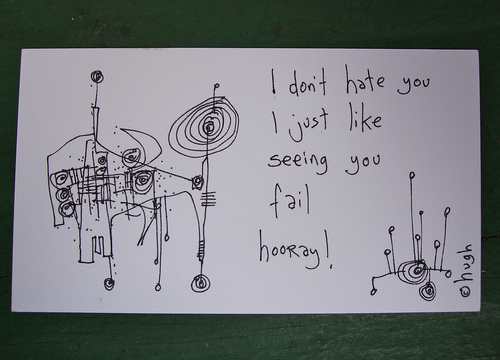 I don't hate you
I just like
seeing you
fail
hooray!
©hugh